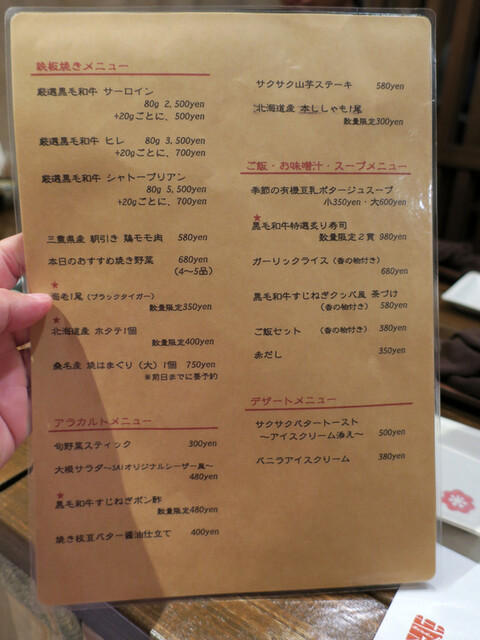 鉄板焼きメニュー
厳選黒毛和牛 サーロイン
80g 2,500yen
+20gごとに、500yen
厳選黒毛和牛 ヒレ 80g 3,500yen
+20gごとに、700yen
厳選黒毛和牛 シャトーブリアン
80g 5,500yen
+20gごとに、700yen
三重県産 朝引き 鶏モモ肉 580yen
本日のおすすめ焼き野菜 680yen
(4〜5品)
★
海老1尾 (ブラックタイガー)
数量限定350yen
★
北海道産 ホタテ1個
数量限定400yen
桑名産 焼はまぐり (大) 1個 750yen
※前日までに要予約
アラカルトメニュー
旬野菜スティック 300yen
大根サラダ〜SAIオリジナルシーザー風〜
480yen
★
黒毛和牛すじねぎポン酢
数量限定480yen
焼き枝豆バター醤油仕立て 400yen
サクサク山芋ステーキ 580yen
北海道産 本ししゃも1尾
数量限定300yen
ご飯・お味噌汁・スープメニュー
季節の有機豆乳ポタージュスープ
小350yen・大600yen
★
黒毛和牛特選炙り寿司
数量限定2貫 980yen
ガーリックライス (香の物付き)
680yen
黒毛和牛すじねぎクッパ風 茶づけ
(香の物付き) 580yen
ご飯セット (香の物付き) 380yen
赤だし 350yen
デザートメニュー
サクサクバタートースト
〜アイスクリーム添え〜 500yen
バニラアイスクリーム 380yen